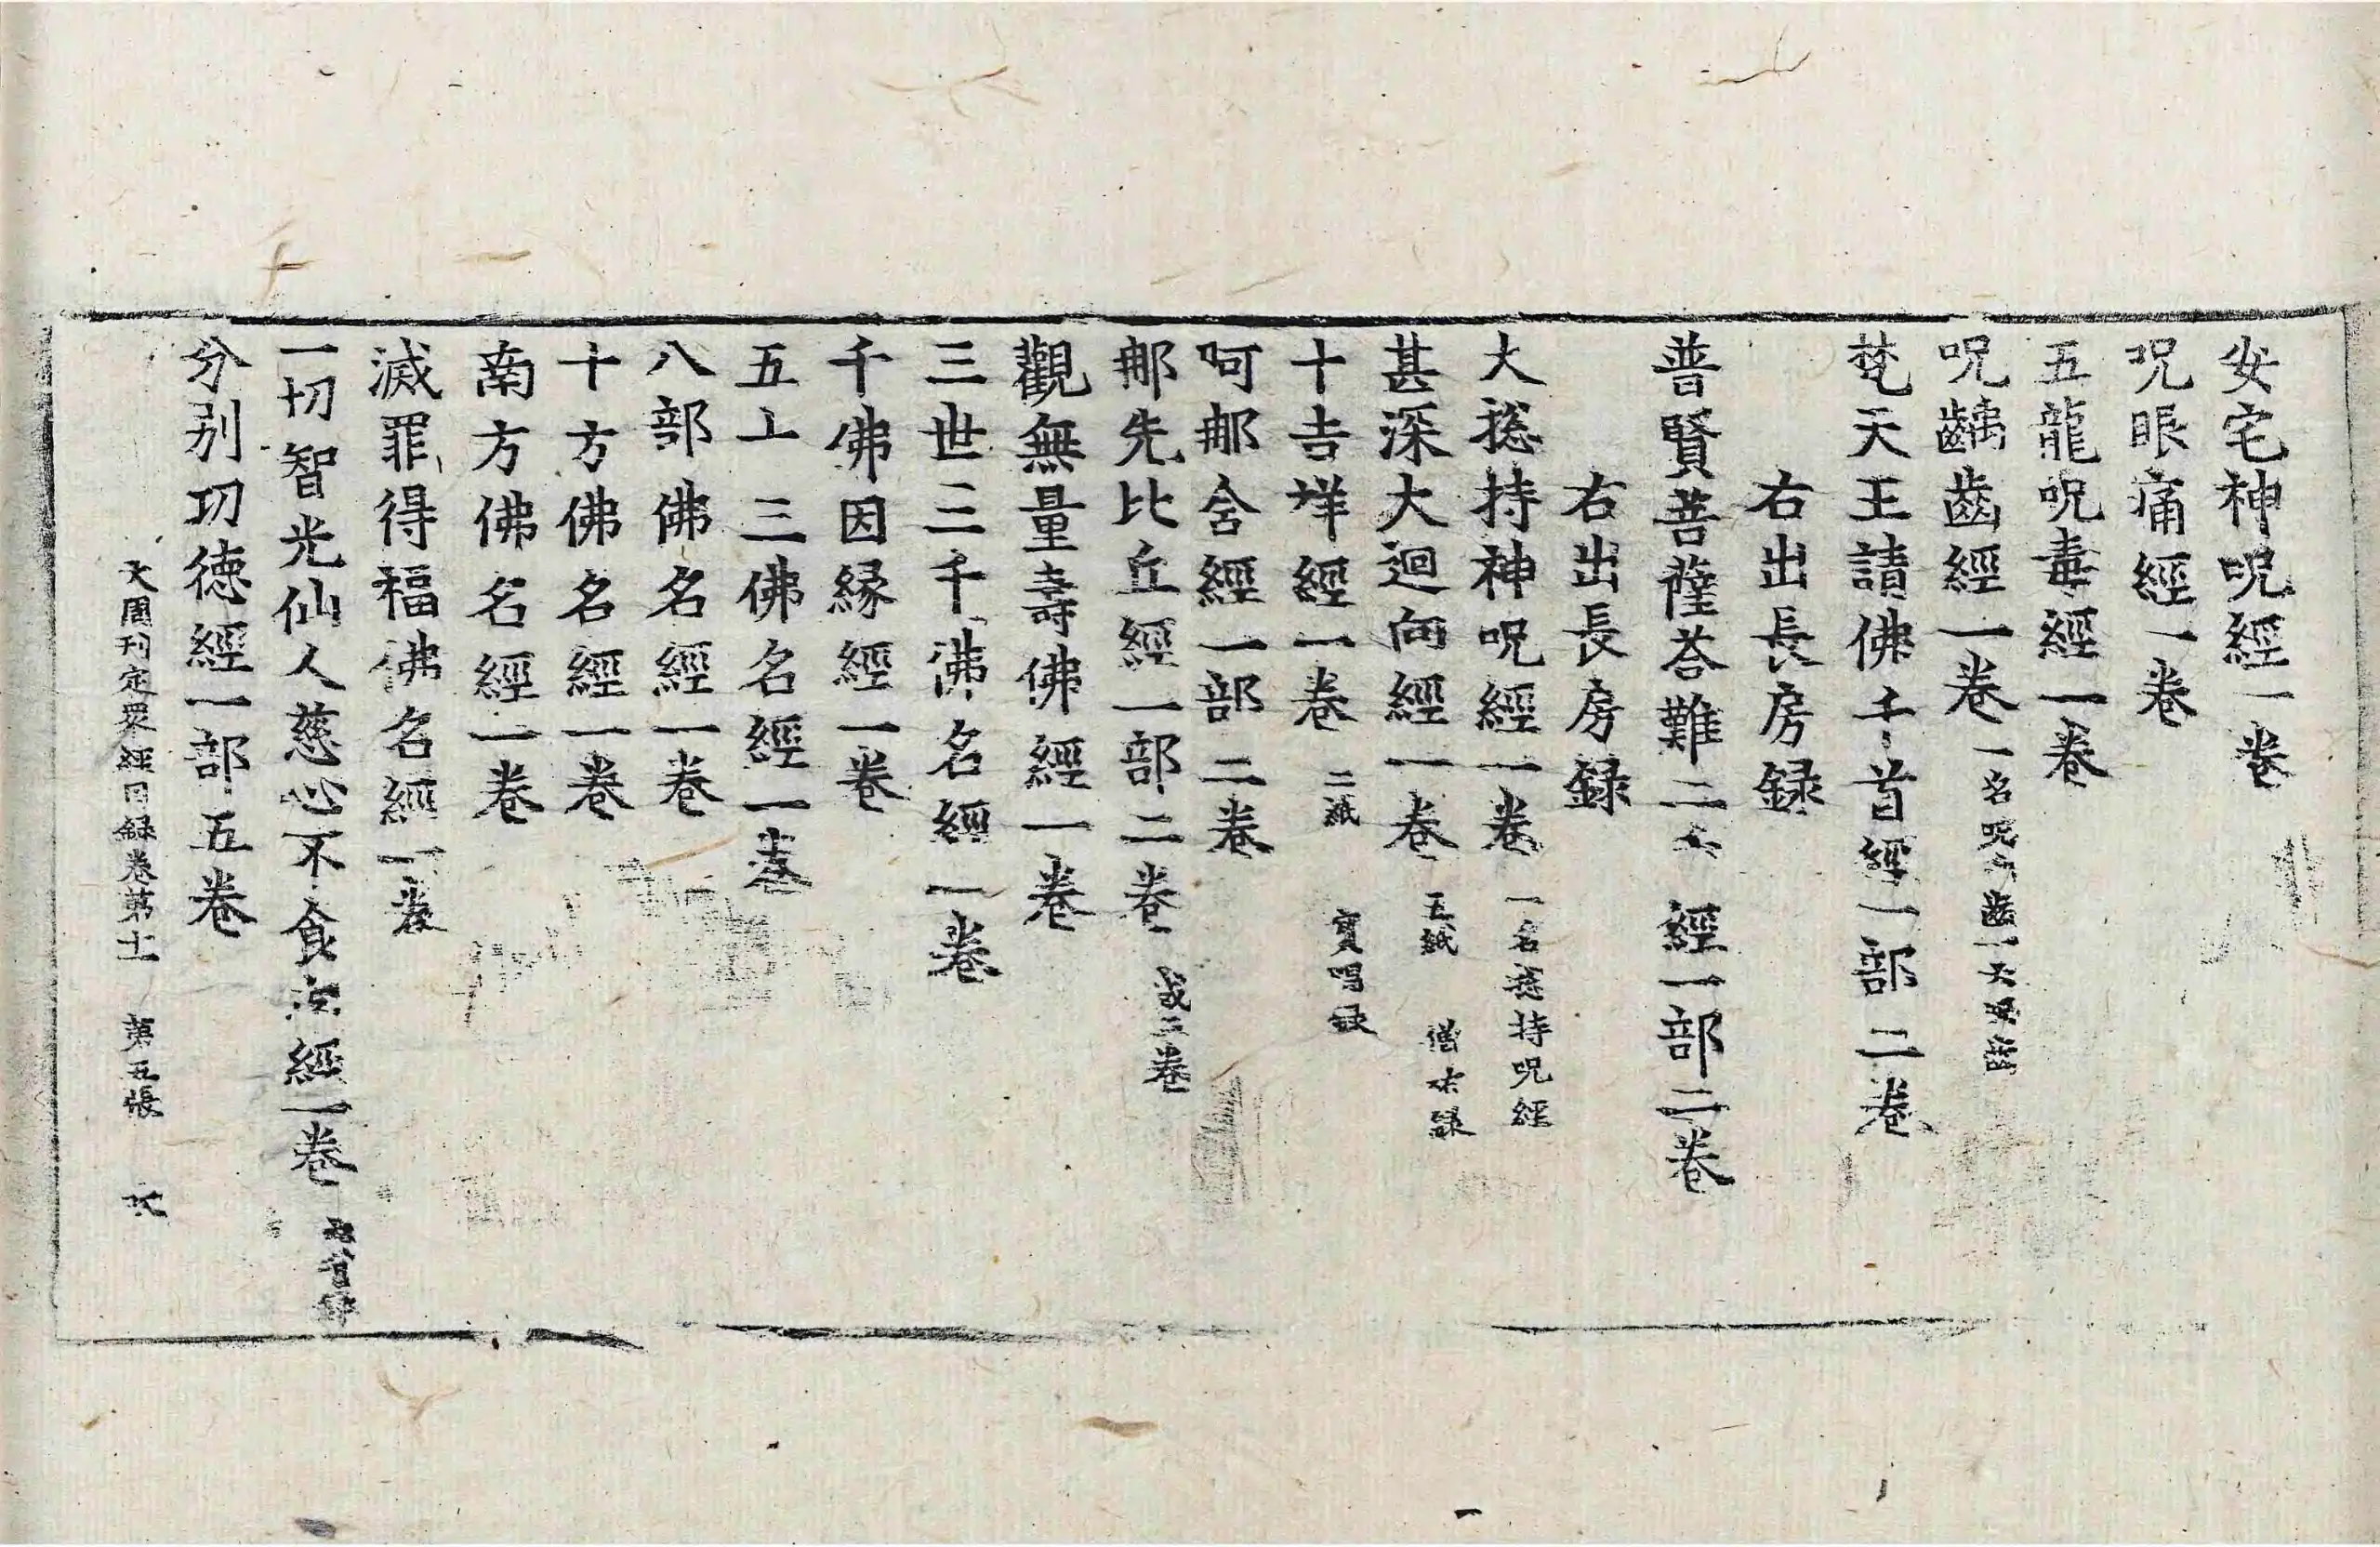 安宅神呪經一卷
呪眼痛經一卷
五龍呪毒經一卷
呪齲齒經一卷 一名呪齒
梵天王請佛千首經一部二卷
右出長房録
普賢菩薩荅難二 經一部二卷
右出長房録
大捴持神呪經一卷 一名捴持呪經
甚深大迴向經一卷 五紙 僧祐録
十吉祥經一卷 二紙 寳唱録
呵那含經一部二卷
那先比丘經一部二卷 或三卷
觀無量壽佛經一卷
三世三千佛名經一卷
千佛因縁經一卷
五十三佛名經一卷
八部佛名經一卷
十方佛名經一卷
南方佛名經一卷
滅罪得福佛名經一卷
一切智光仙人慈心不食肉經一卷
分别功徳經一部五卷
大周刊定眾經目録卷第十一 第五張